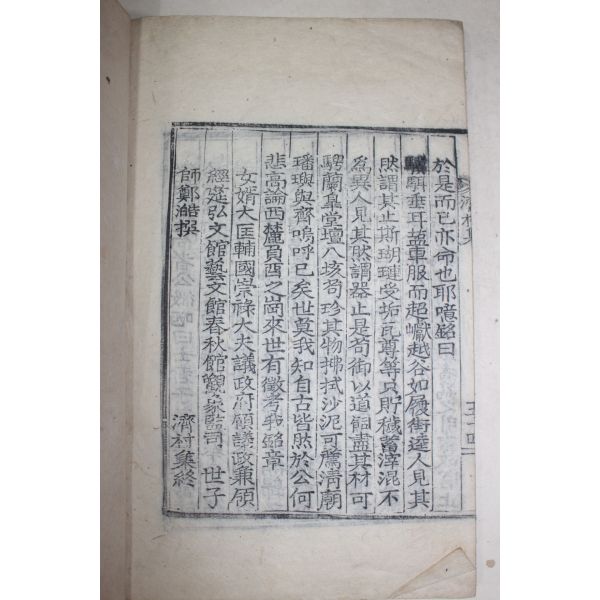 於是而已亦命也耶噫銘曰
騏驥垂耳鹽車服而超巘越谷如履街逵人見其
然謂其止斯瑚璉受垢瓦尊等只貯穢蓄滓混不
爲異人見其然謂器止是苟御以道能盡其材可
騁蘭臯堂壇八垓苟珍其物拂拭沙泥可薦淸朝
璠璵與齊嗚呼已矣世莫我知自古皆然於公何
悲高論西麓負酉之崗來世有徵考我銘章
女婿大匡輔國崇祿大夫議政府領議政兼領
經筵弘文館藝文館春秋館觀象監司 世子
師鄭澔撰
濟村集終